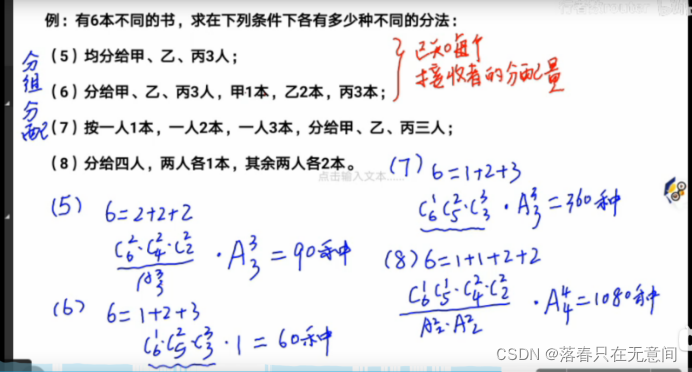 例：有6本不同的书，求在下列条件下各有多少种不同的分法：
（5）均分给甲、乙、丙3人；
（6）分给甲、乙、丙3人，甲1本，乙2本，丙3本；
（7）按一人1本，一人2本，一人3本，分给甲、乙、丙三人；
（8）分给四人，两人各1本，其余两人各2本。
分组分配
已知每个
接收者的分配量
点击输入文本
(5) 6=2+2+2
C₆²·C₄²·C₂²/A₃³ · A₃³ = 90种
(6) 6=1+2+3
C₆¹·C₅²·C₃³ · 1 = 60种
(7) 6=1+2+3
C₆¹C₅²·C₃³ · A₃³ = 360种
(8) 6=1+1+2+2
C₆¹C₅¹·C₄²·C₂²/A₂²·A₂² · A₄⁴ = 1080种
CSDN @落春只在无意间